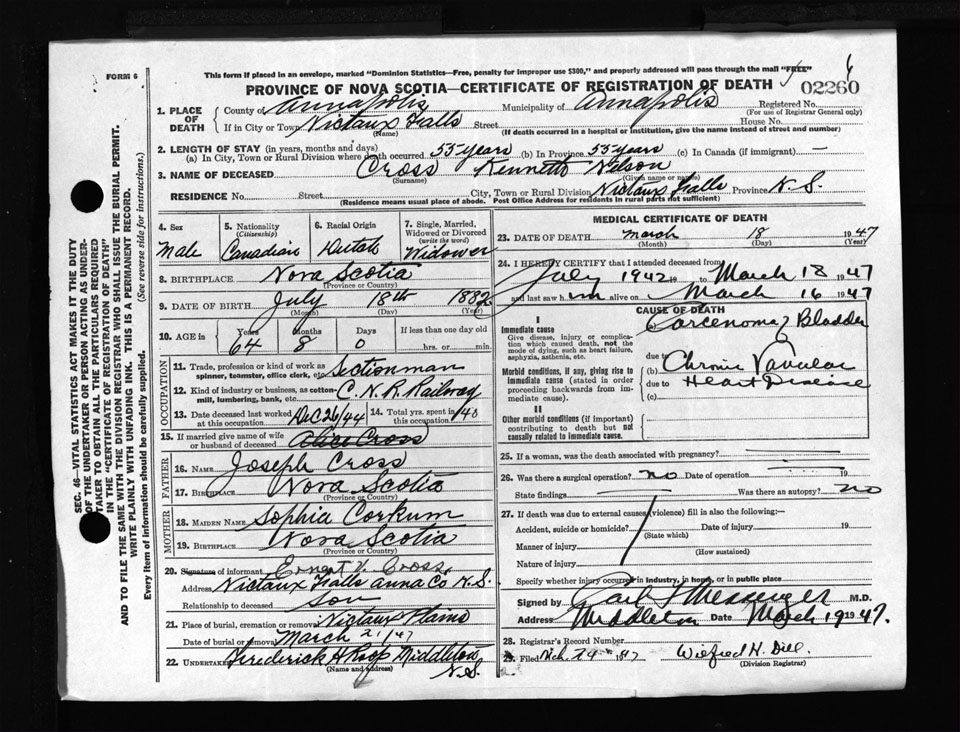 FORM 6
This form if placed in an envelope, marked "Dominion Statistics—Free, penalty for improper use $300," and properly addressed will pass through the mail "FREE"
PROVINCE OF NOVA SCOTIA—CERTIFICATE OF REGISTRATION OF DEATH
02260
1. PLACE OF DEATH
County of Annapolis Municipality of Annapolis Registered No.
(For use of Registrar General only)
If in City or Town Nictaux Falls Street House No.
(Name) (If death occurred in a hospital or institution, give the name instead of street and number)
2. LENGTH OF STAY (in years, months and days)
(a) In City, Town or Rural Division where death occurred 55 years (b) In Province 55 years (c) In Canada (if immigrant) —
3. NAME OF DECEASED Cross Kenneth Nelson
(Surname) (Given name or names)
RESIDENCE No. Street City, Town or Rural Division Nictaux Falls Province N.S.
(Residence means usual place of abode. Post Office Address for residents in rural parts not sufficient)
4. Sex
Male
5. Nationality
(Citizenship)
Canadian
6. Racial Origin
Dutch
7. Single, Married, Widowed or Divorced
(write the word)
Widower
8. BIRTHPLACE Nova Scotia
(Province or Country)
9. DATE OF BIRTH July 18th 1882
(Month) (Day) (Year)
10. AGE in Years Months Days If less than one day old
64 8 0 hrs. or min.
OCCUPATION
11. Trade, profession or kind of work as spinner, teamster, office clerk, etc. Sectionman
12. Kind of industry or business, as cotton-mill, lumbering, bank, etc. C.N.R. Railway
13. Date deceased last worked at this occupation Dec 26/44
14. Total yrs. spent in this occupation 40
15. If married give name of wife or husband of deceased Alice Cross
FATHER
16. NAME Joseph Cross
17. BIRTHPLACE Nova Scotia
(Province or Country)
MOTHER
18. MAIDEN NAME Sophia Corkum
19. BIRTHPLACE Nova Scotia
(Province or Country)
20. Signature of informant Ernest V. Cross
Address Nictaux Falls Anna Co. N.S.
Relationship to deceased Son
21. Place of burial, cremation or removal Nictaux Plains
Date of burial or removal March 21/47
22. Undertaker Frederick Middleton N.S.
(Name and address)
MEDICAL CERTIFICATE OF DEATH
23. DATE OF DEATH March 18 1947
(Month) (Day) (Year)
24. I HEREBY CERTIFY that I attended deceased from
July 1942 19 to March 18 1947
and last saw him alive on March 16 1947
CAUSE OF DEATH
I
Immediate cause
Give disease, injury or complication which caused death, not the mode of dying, such as heart failure, asphyxia, asthenia, etc.
(a) Carcenoma of Bladder
due to
Morbid conditions, if any, giving rise to immediate cause (stated in order proceeding backwards from immediate cause).
(b) Chronic Vavular
due to Heart Disease
(c)
II
Other morbid conditions (if important) contributing to death but not causally related to immediate cause.
25. If a woman, was the death associated with pregnancy?
26. Was there a surgical operation? no Date of operation 19
State findings — Was there an autopsy? no
27. If death was due to external causes (violence) fill in also the following:—
Accident, suicide or homicide? Date of injury 19
(State which)
Manner of injury
(How sustained)
Nature of injury
Specify whether injury occurred in industry, in home, or in public place
Signed by Messenger M.D.
Address Middleton Date March 19 1947.
28. Registrar's Record Number
29. Filed Mch. 24 1947 Wilfred H. Dill.
(Division Registrar)
SEC. 46—VITAL STATISTICS ACT MAKES IT THE DUTY
OF THE UNDERTAKER OR PERSON ACTING AS UNDERTAKER TO OBTAIN ALL THE PARTICULARS REQUIRED
IN THE "CERTIFICATE OF REGISTRATION OF DEATH"
AND TO FILE THE SAME WITH THE DIVISION REGISTRAR WHO SHALL ISSUE THE BURIAL PERMIT.
WRITE PLAINLY WITH UNFADING INK. THIS IS A PERMANENT RECORD.
Every item of information should be carefully supplied. (See reverse side for instructions.)